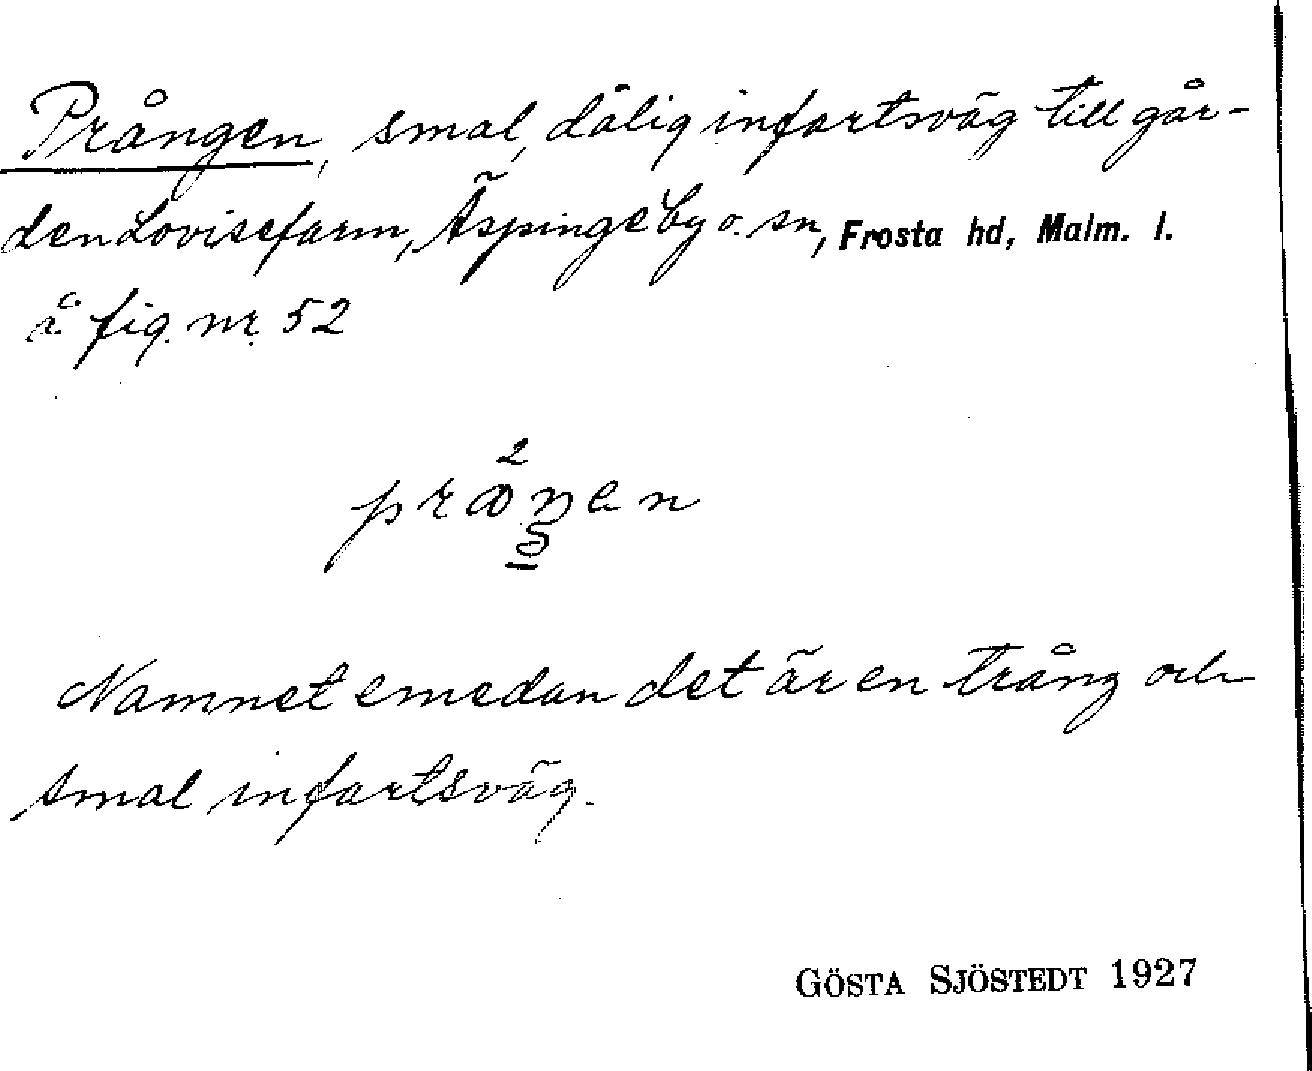 Prången, smal, dålig infartsväg till går-
den Lovisefarm, Äspinge by o. sn, Frosta hd, Malm. l.
å fig. nr. 52
Namnet emedan det är en trång och
smal infartsväg.
GÖSTA SJÖSTEDT 1927